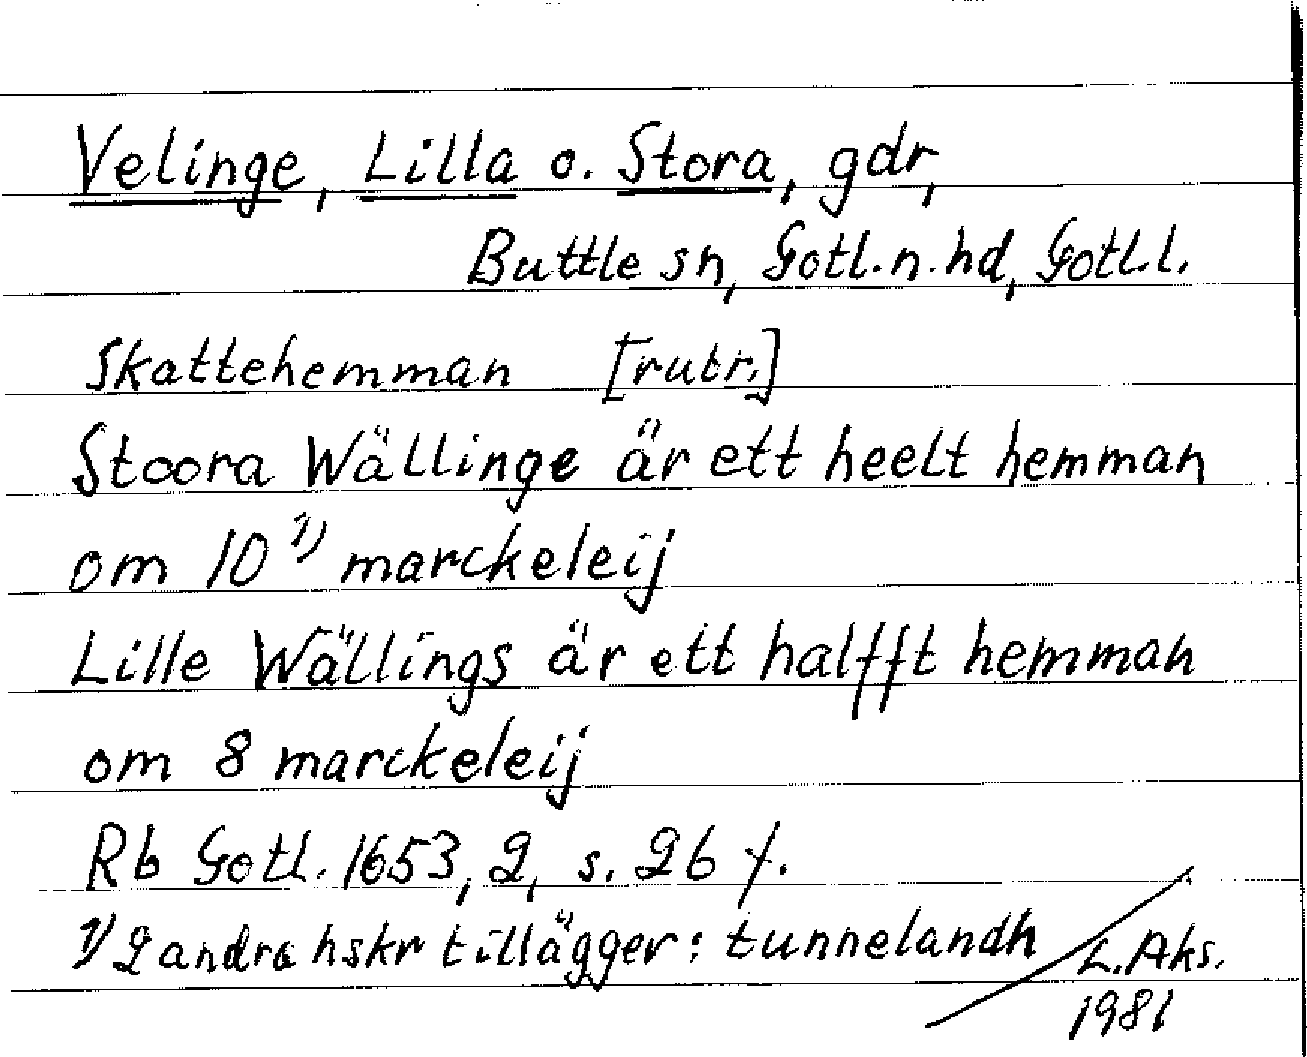 Velinge, Lilla o. Stora, gdr,
Buttle sn, Gotl. n. hd, Gotl. l.
Skattehemman [rubr.]
Stoora Wällinge är ett heelt hemman
om 10 1) marckeleij
Lille Wällings är ett halfft hemman
om 8 marckeleij
Rb Gotl. 1653, 2, s. 26 f.
1) 2 andra hskr tillägger: tunnelandh
L. Aks.
1981